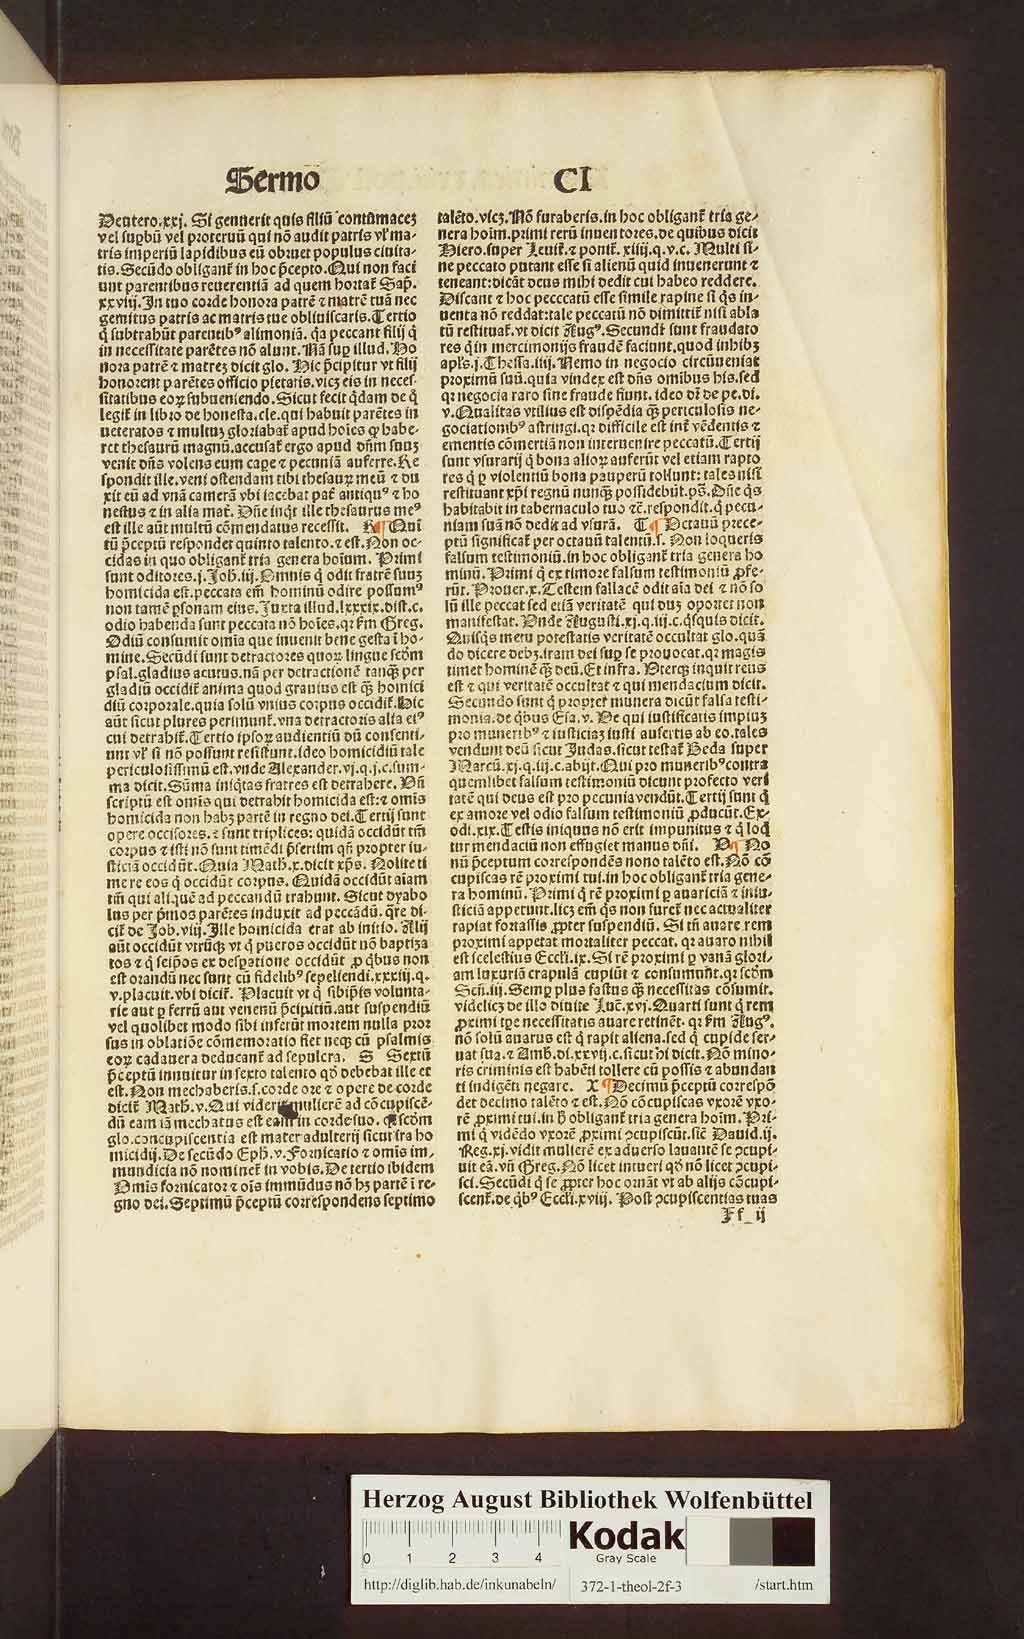 Sermō CI
Deutero.xxj. Si gennerit quis filiū contumacez
vel supbū vel proteruū qui nō audit patris vľ ma-
tris imperiū lapidibus eū obruet populus ciuita-
tis. Secūdo obliganť in hoc p̄cepto. Qui non faci
unt parentibus reuerentiā ad quem hortať Sap.
xxviij. In tuo corde honora patrē ⁊ matrē tuā nec
gemitus patris ac matris tue obliuiscaris. Tertio
q̇ subtrahūt parentibꝰ alimoniā. q̇a peccant filij q̇
in necessitate parētes nō alunt. Nā suꝑ illud. Ho
nora patrē ⁊ matrez dicit glo. Hic p̄cipitur vt filij
honorent parētes officio pietatis. vicz eis in neces-
sitatibus eoꝝ subueniendo. Sicut fecit q̇dam de q̇
legiť in libro de honesta. cle. qui habuit parētes in
ueteratos ⁊ multuz gloriabať apud hoīes ꝙ habe-
ret thesaurū magnū. accusať ergo apud dn̄m suuz
venit dn̄s volens eum cape ⁊ pecuniā auferre. Re
spondit ille. veni ostendam tibi thesauꝝ meū ⁊ du
xit eū ad vnā camerā vbi iacebat pať antiquꝰ ⁊ ho
nestus ⁊ in alia mať. Dn̄e inq̇t ille thesaurus meꝰ
est ille aūt multū cōmendatus recessit. R ¶ Quī
tū p̄ceptū respondet quinto talento. ⁊ est. Non oc-
cidas in quo obliganť tria genera hoīum. Primi
sunt oditores. j. Joh. iij. Omnis q̇ odit fratrē suuz
homicida est. peccata em̄ hominū odire possumꝰ
non tamē ꝑsonam eius. Juxta illud. lxxxix. dist. c.
odio habenda sunt peccata nō hoīes. qr fm̄ Greg.
Odiū consumit omīa que inuenit bene gesta ī ho-
mine. Secūdi sunt detractores quoꝝ lingue scd̄m
psal. gladius acutus. nā per detractionē tanq̄ꝫ per
gladiū occidiť anima quod grauius est q̄ꝫ homici
diū corporale. quia solū vnius corpus occidiť. Hic
aūt sicut plures perimunť. vna detractoris alia eiꝰ
cui detrahiť. Tertio ipsoꝝ audientiū dū consenti-
unt vľ si nō possunt resistunt. ideo homicidiū tale
periculosissimū est. vnde Alexander. vj. q. j. c. sum-
ma dicit. Sūma iniq̇tas fratres est detrahere. Vn̄
scriptū est omīs qui detrahit homicida est: ⁊ omīs
homicida non habz partē in regno dei. Tertij sunt
opere occisores. ⁊ sunt triplices: quidā occidūt tm̄
corpus ⁊ isti nō sunt timēdi p̄sertim qn̄ propter iu-
sticiā occidūt. Quia Math. x. dicit xp̄s. Nolite ti
mere eos q̇ occidūt corpus. Quidā occidūt aīam
tm̄ qui aliquē ad peccandū trahunt. Sicut dyabo
lus per p̄mos parētes induxit ad peccādū. q̄re di-
ciť de Joh. viij. Ille homicida erat ab initio. Alij
aūt occidūt vtrūqꝫ vt q̇ pueros occidūt nō baptiza
tos ⁊ q̇ seip̄os ex despatione occidūt ꝓ q̇bus non
est orandū nec sunt cū fidelibꝰ sepeliendi. xxxiij. q.
v. placuit. vbi diciť. Placuit vt q̇ sibip̄is volunta-
rie aut ꝑ ferrū aut venenū p̄cipitiū. aut suspendiū
vel quolibet modo sibi inferūt mortem nulla pror
sus in oblatiōe cōmemoratio fiet neqꝫ cū psalmis
eoꝝ cadauera deducanť ad sepulcra. S Sextū
p̄ceptū innuitur in sexto talento qd̄ debebat ille et
est. Non mechaberis. s. corde ore ⁊ opere de corde
diciť Math. v. Qui viderit mulierē ad cōcupiscē-
dū eam iā mechatus est eam in corde suo. qr scd̄m
glo. concupiscentia est mater adulterij sicut ira ho
micidij. De secūdo Eph. v. Fornicatio ⁊ omīs im-
mundicia nō nomineť in vobis. De tertio ibidem
Omīs fornicator ⁊ oīs immūdus nō hz partē ī re-
gno dei. Septimū p̄ceptū correspondens septimo
talēto. vicz. Nō furaberis. in hoc obliganť tria ge-
nera hoīm. primi rerū inuentores. de quibus dicit
Hiero. super Leuiť. ⁊ poniť. xiiij. q. v. c. Multi si-
ne peccato putant esse si alienū quid inuenerunt ⁊
teneant: dicāt deus mihi dedit cui habeo reddere.
Discant ⁊ hoc pecccatū esse simile rapine si q̇s in-
uenta nō reddat: tale peccatū nō dimittiť nisi abla
tū restituať. vt dicit Augꝰ. Secundi sunt fraudato
res q̇ in mercimonijs fraudē faciunt. quod inhibz
apl̄s. j. Thessa. iiij. Nemo in negocio circūueniat
proximū suū. quia vindex est dn̄s omībus his. sed
qr negocia raro sine fraude fiunt. ideo dř de pe. di.
v. Qualitas vtilius est dispēdia q̄ꝫ periculosis ne-
gociationibꝰ astringi. qr difficile est inť vēdentis ⁊
ementis cōmertiā non interuenire peccatū. Tertij
sunt vsurarij q̇ bona alioꝝ auferūt vel etiam rapto
res q̇ ꝑ violentiū bona pauperū tollunt: tales nisi
restituant xp̄i regnū nunq̄ꝫ possidebūt. ps̄. Dn̄e q̇s
habitabit in tabernaculo tuo ⁊c̄. respondit. q̇ pecu-
niam suā nō dedit ad vsurā. T ¶ Octauū prece-
ptū significať per octauū talentū. s. Non loqueris
falsum testimoniū. in hoc obliganť tria genera ho
minū. Primi q̇ ex timore falsum testimoniū ꝓfe-
rūt. Prouer. x. Testem fallacē odit aīa dei ⁊ nō so
lū ille peccat sed etiā veritatē qui duz oportet non
manifestat. Vnde Augusti. xj. q. iij. c. q̇squis dicit.
Quisq̇s metu potestatis veritatē occultat glo. quā
do dicere debz. iram dei suꝑ se prouocat. qr magis
timet hominē q̄ꝫ deū. Et infra. Vterqꝫ inquit reus
est ⁊ qui veritatē occultat ⁊ qui mendacium dicit.
Secundo sunt q̇ propter munera dicūt falsa testi-
monia. de q̇bus Esa. v. Ve qui iustificatis impiuz
pro muneribꝰ ⁊ iusticiaz iusti aufertis ab eo. tales
vendunt deū sicut Judas. sicut testať Beda super
Marcū. xj. q. iij. c. abijt. Qui pro muneribꝰ contra
quemlibet falsum testimoniū dicunt profecto veri
tatē qui deus est pro pecunia vendūt. Tertij sunt q̇
ex amore vel odio falsum testimoniū ꝓducūt. Ex-
odi. xix. Testis iniquus nō erit impunitus ⁊ q̇ loq̇
tur mendaciū non effugiet manus dn̄i. V ¶ No
nū p̄ceptum correspondēs nono talēto est. Nō cō
cupiscas rē proximi tui. in hoc obliganť tria gene-
ra hominū. Primi q̇ rē proximi ꝑ auariciā ⁊ iniu-
sticiā appetunt. licz em̄ q̇s non fureť nec actualiter
rapiat fortassis ꝓpter suspendiū. Si tn̄ auare rem
proximi appetat mortaliter peccat. qr auaro nihil
est scelestius Eccľi. ix. Si rē proximi ꝑ vanā glori-
am luxuriā crapulā cupiūt ⁊ consumunt. qr scd̄m
Sen̄. iij. Semꝑ plus fastus q̄ꝫ necessitas cōsumit.
videlicz de illo diuite Luc̄. xvj. Quarti sunt q̇ rem
ꝓximi tꝑe necessitatis auare retinēt. qr fm̄ Augꝰ.
nō solū auarus est q̇ rapit aliena. sed q̇ cupide ser-
uat sua. ⁊ Amb. di. xxvij. c. sicut hi dicit. Nō mino-
ris criminis est habēti tollere cū possis ⁊ abundan
ti indigēti negare. X ¶ Decimū p̄ceptū correspō
det decimo talēto ⁊ est. Nō cōcupiscas vxorē vxo-
rē ꝓximi tui. in h̄ obliganť tria genera hoīm. Pri-
mi q̇ vidēdo vxorē ꝓximi ꝯcupiscūt. sic̄ Dauid. ij.
Reg. xj. vidit mulierē ex aduerso lauantē se ꝯcupi-
uit eā. vn̄ Greg. Nō licet intueri qd̄ nō licet ꝯcupi-
sci. Secūdi q̇ se ꝓpter hoc ornāt vt ab alijs cōcupi-
scenť. de q̇bꝰ Eccľi. xviij. Post ꝯcupiscentias tuas
Ff ij
Herzog August Bibliothek Wolfenbüttel
0 1 2 3 4
Kodak
Gray Scale
http://diglib.hab.de/inkunabeln/ 372-1-theol-2f-3 /start.htm